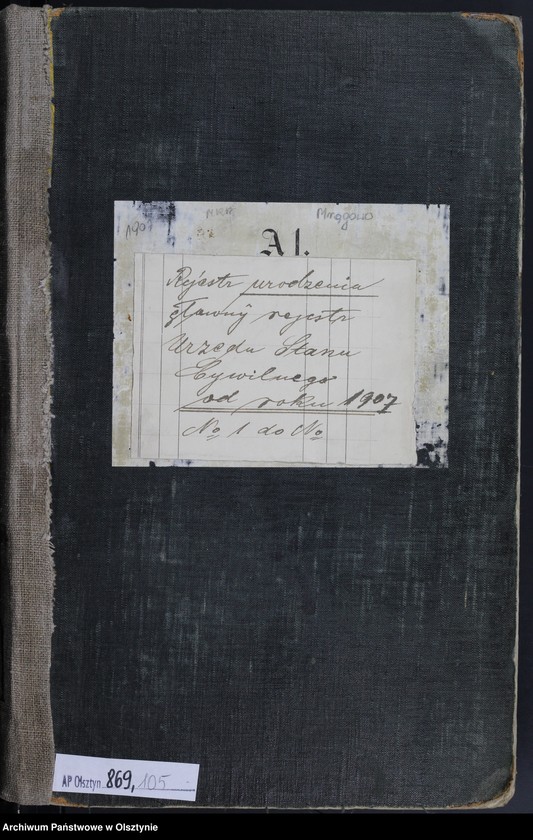 Mrągowo
190
A I.
Rejestr urodzenia
główny rejestr
Urzędu Stanu
Cywilnego
od roku 1907
No 1 do No
AP Olsztyn 869, 105
Archiwum Państwowe w Olsztynie